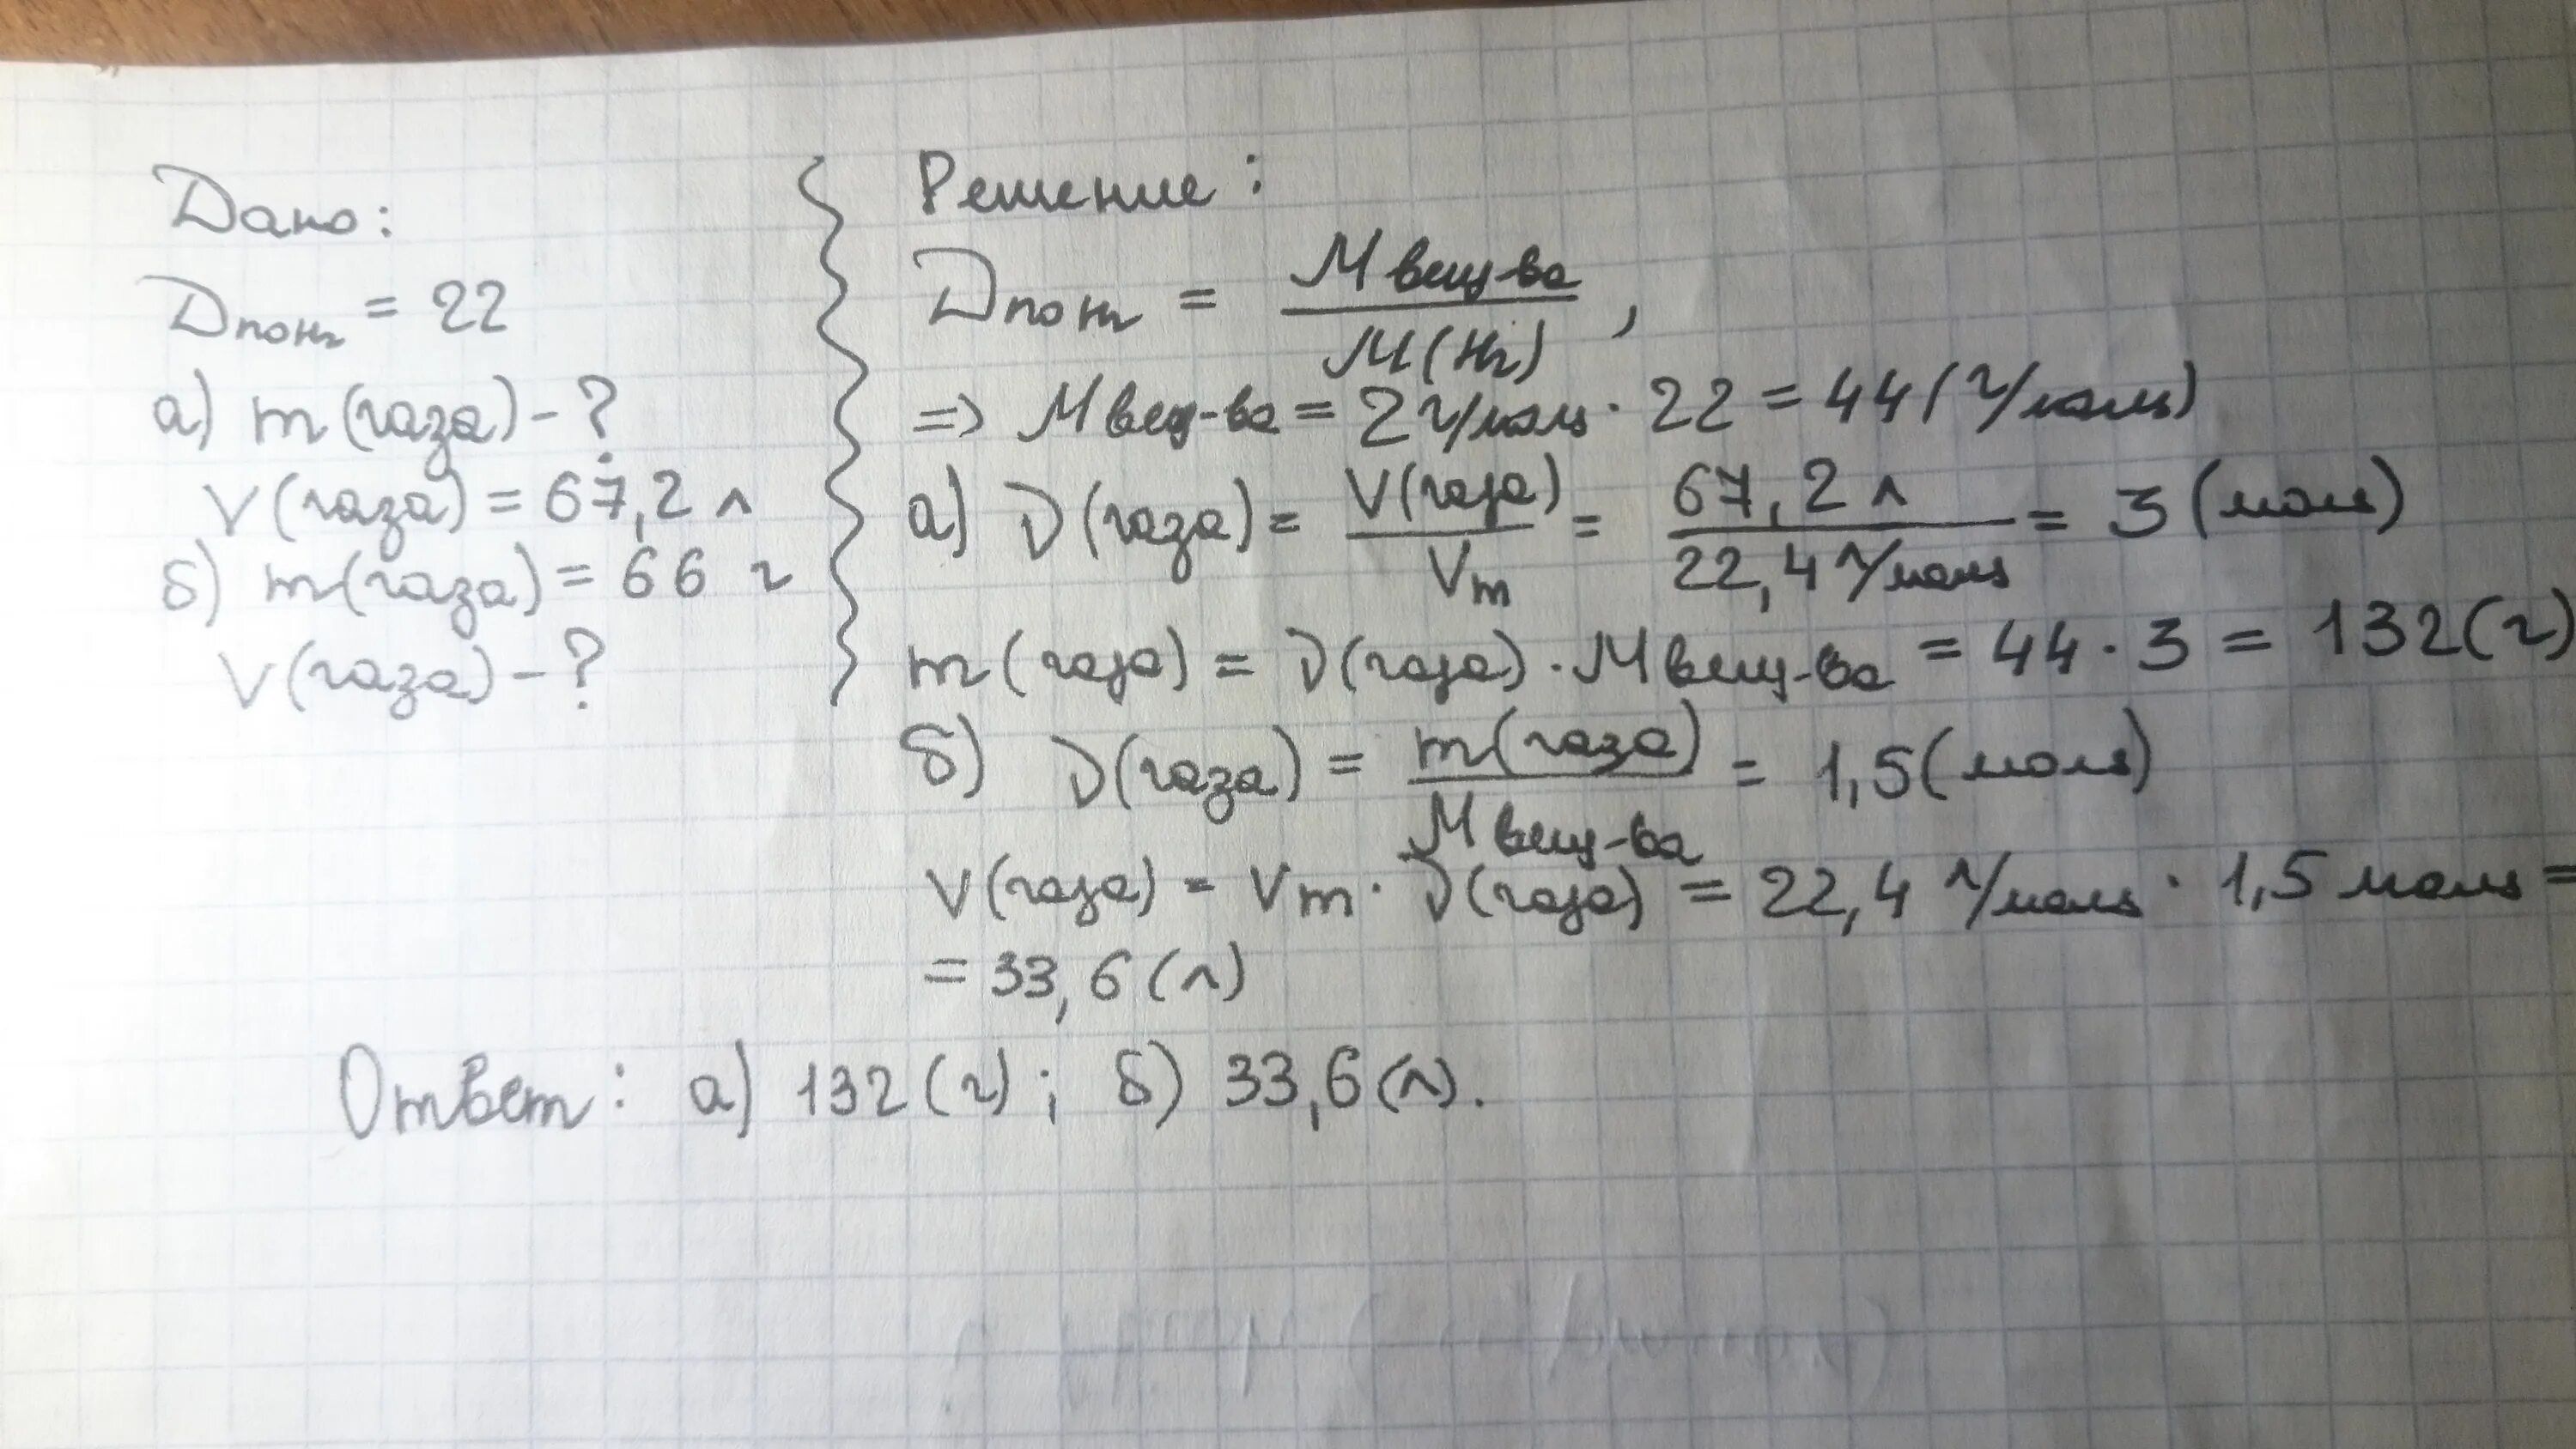 Дано:
DпоH2 = 22
а) m(газа) - ?
V(газа) = 67,2 л
б) m(газа) = 66 г
V(газа) - ?
Решение:
DпоH2 = Mвещ-ва / M(H2) ,
=> Mвещ-ва = 2 г/моль · 22 = 44 (г/моль)
а) ν(газа) = V(газа) / Vm = 67,2 л / 22,4 л/моль = 3 (моль)
m(газа) = ν(газа) · Mвещ-ва = 44 · 3 = 132(г)
б) ν(газа) = m(газа) / Mвещ-ва = 1,5(моль)
V(газа) = Vm · ν(газа) = 22,4 л/моль · 1,5 моль =
= 33,6 (л)
Ответ: а) 132(г); б) 33,6(л).